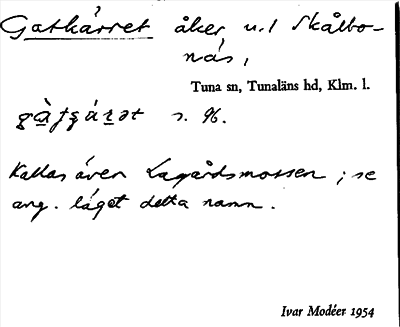 Gatkärret åker u.l Skålbo-
näs,
Tuna sn, Tunaläns hd, Klm. l.
s. 96.
Kallas även Lagårdsmossen ; se
ang. läget detta namn.
Ivar Modéer 1954